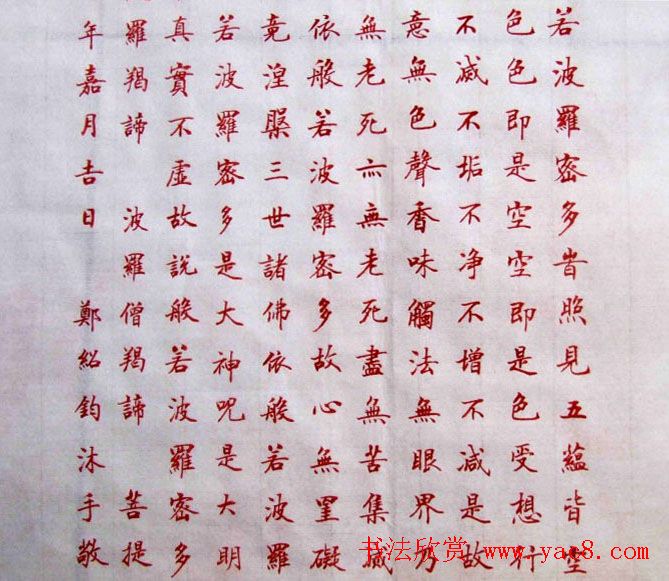 若波羅密多旹照見五蘊皆空
色色即是空空即是色受想行
不滅不垢不净不增不減是故
意無色聲香味觸法無眼界乃
無老死亦無老死盡無苦集滅
依般若波羅密多故心無罣礙
竟涅槃三世諸佛依般若波羅
若波羅密多是大神呪是大明
真實不虛故說般若波羅密多
羅羯諦 波羅僧羯諦 菩提
年嘉月吉日 鄭紹鈞沐手敬
书法欣赏 www.yac8.com